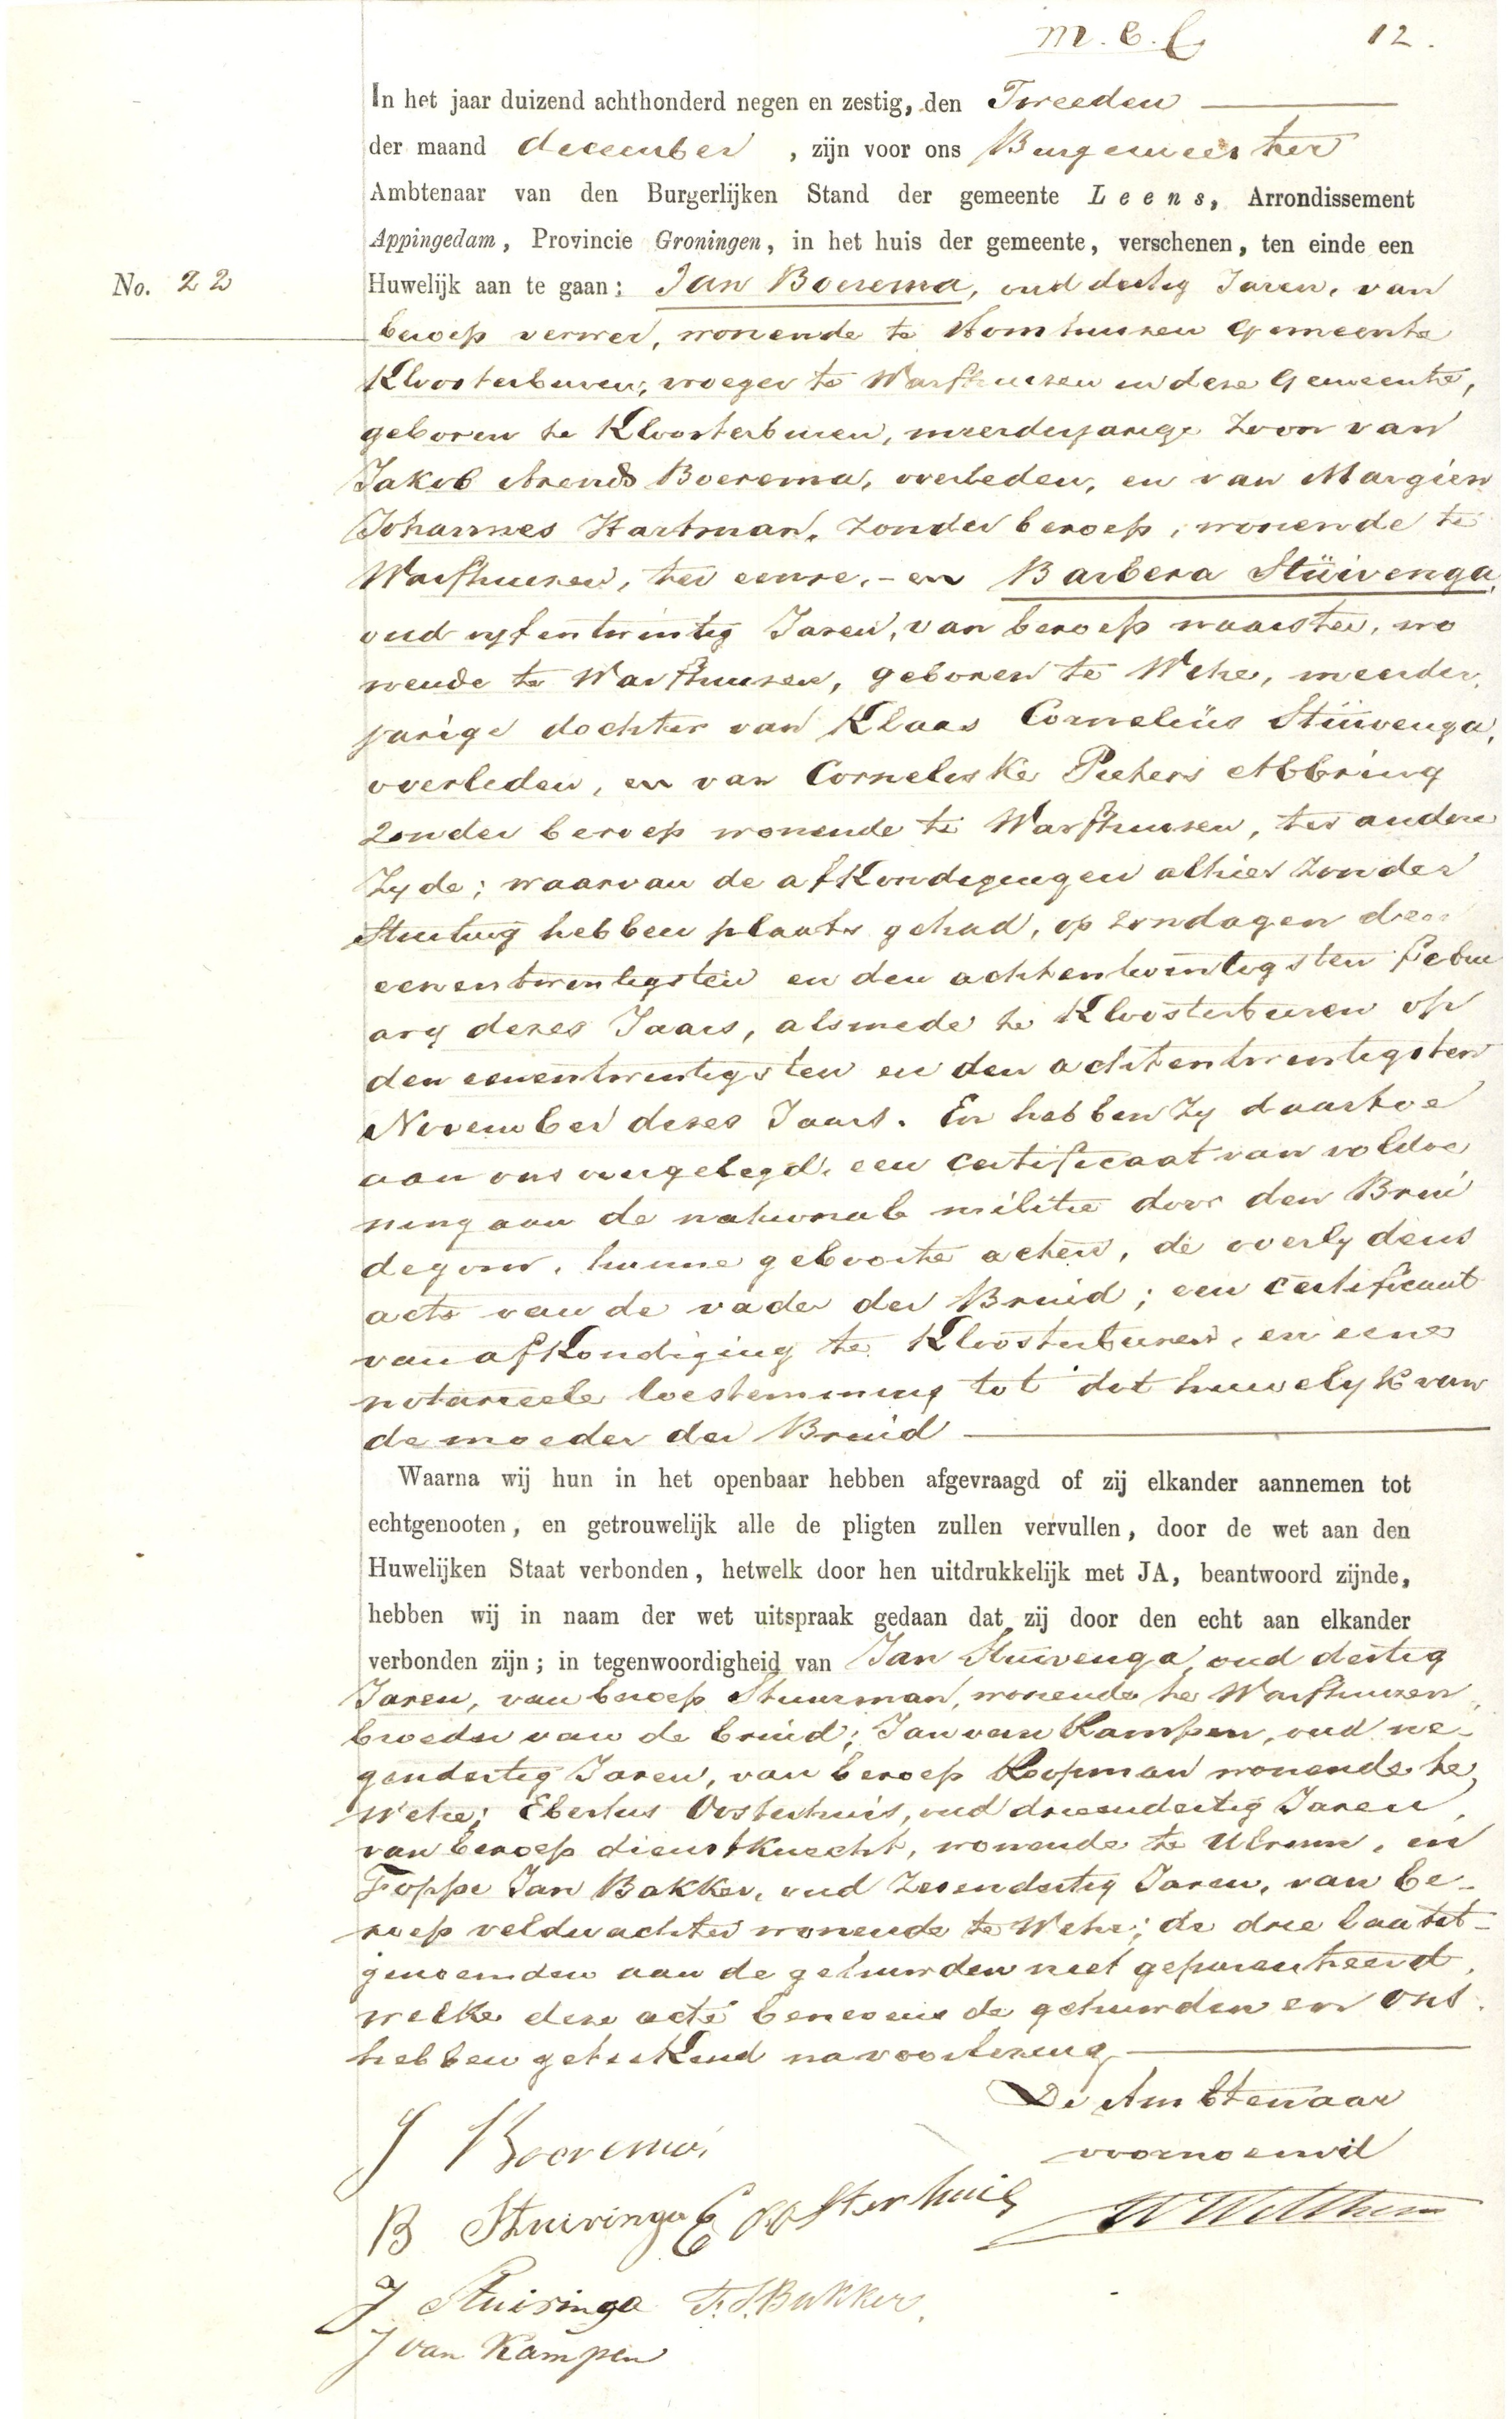 M. C. C. 12.
In het jaar duizend achthonderd negen en zestig, den Tweeden
der maand december , zijn voor ons Burgemeester
Ambtenaar van den Burgerlijken Stand der gemeente Leens, Arrondissement
Appingedam, Provincie Groningen, in het huis der gemeente, verschenen, ten einde een
No. 22
Huwelijk aan te gaan: Jan Boerema, oud dertig Jaren, van
beroep verwer, wonende te Hornhuizen Gemeente
Kloosterburen, vroeger te Warfhuizen in deze Gemeente,
geboren te Kloosterburen, meerderjarige Zoon van
Jakob Arends Boerema, overleden, en van Margien
Johannes Hartman, zonder beroep, wonende te
Warfhuizen, ter eenre, - en Barbera Stüivenga,
oud vyfentwintig Jaren, van beroep naaister, wo
nende te Warfhuizen, geboren te Wehe, meerder,
jarige dochter van Klaas Cornelius Stüivenga,
overleden, en van Corneliske Pieters Abbring
zonder beroep wonende te Warfhuizen, ter andere
Zyde; waarvan de afkondigingen alhier zonder
Stuiting hebben plaats gehad, op zondagen den
eenentwintigsten en den achtentwintigsten Febru
ary dezes Jaars, alsmede te Kloosterburen op
den eenentwintigsten en den achtentwintigsten
November dezes Jaars. En hebben zy daartoe
aan ons overgelegd, een certificaat van voldoe
ning aan de nationale militie door den Brui
degom, hunne geboorte acten, de overlydens
acte van de vader der Bruid; een certificaat
van afkondiging te Kloosterburen, en eene
notarieele toestemming tot dit huwelyk van
de moeder der Bruid
Waarna wij hun in het openbaar hebben afgevraagd of zij elkander aannemen tot
echtgenooten, en getrouwelijk alle de pligten zullen vervullen, door de wet aan den
Huwelijken Staat verbonden, hetwelk door hen uitdrukkelijk met JA, beantwoord zijnde,
hebben wij in naam der wet uitspraak gedaan dat zij door den echt aan elkander
verbonden zijn; in tegenwoordigheid van Jan Stuivenga, oud dertig
Jaren, van beroep Stuurman, wonende te Warfhuizen,
broeder van de bruid; Jan van Kampen, oud ne-
gendertig Jaren, van beroep Koopman wonende te
Wehe; Ebertus Oosterhuis, oud drieendertig Jaren,
van beroep dienstknecht, wonende te Ulrum, en
Foppe Jan Bakker, oud zesendertig Jaren, van be-
roep veldwachter wonende te Wehe; de drie laatst-
genoemden aan de gehuwden niet geparenteerd,
welke deze acte benevens de gehuwden en ons
hebben geteekend na voorlezing
De Ambtenaar
voornoemd
J Boerema
B Stuivinga E Oosterhuis
J Stuivinga F. J. Bakker.
J van Kampen